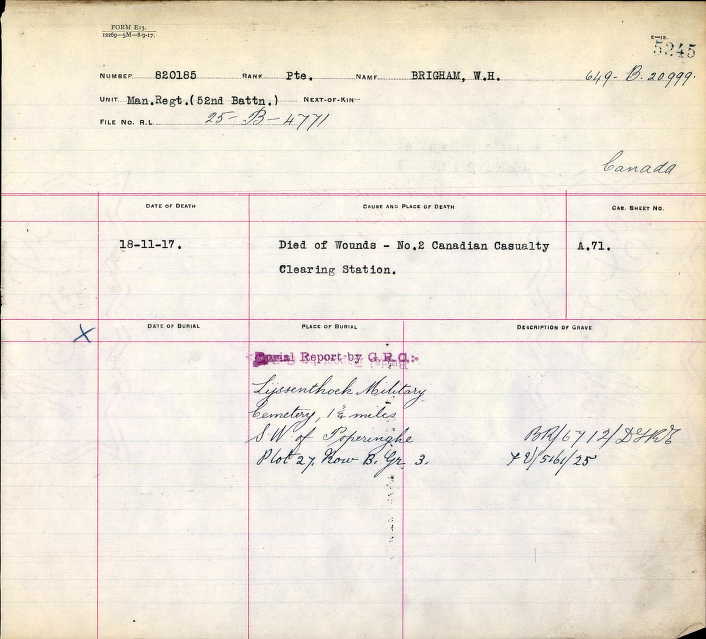 FORM E13.
12269-5M-8-9-17.
5245
NUMBER 820185 RANK Pte. NAME BRIGHAM, W.H. 649-B.20999.
UNIT Man.Regt.(52nd Battn.) NEXT-OF-KIN
FILE NO. R.L 25-B-4771
Canada
DATE OF DEATH CAUSE AND PLACE OF DEATH CAS. SHEET NO.
18-11-17. Died of Wounds - No.2 Canadian Casualty A.71.
Clearing Station.
DATE OF BURIAL PLACE OF BURIAL DESCRIPTION OF GRAVE
X
Burial Report by G.R.C:-
Lijssenthoek Military
Cemetery, 1¾ miles
SW of Poperinghe BR/6712/
Plot 27. Row B. Gr 3. /5161/25